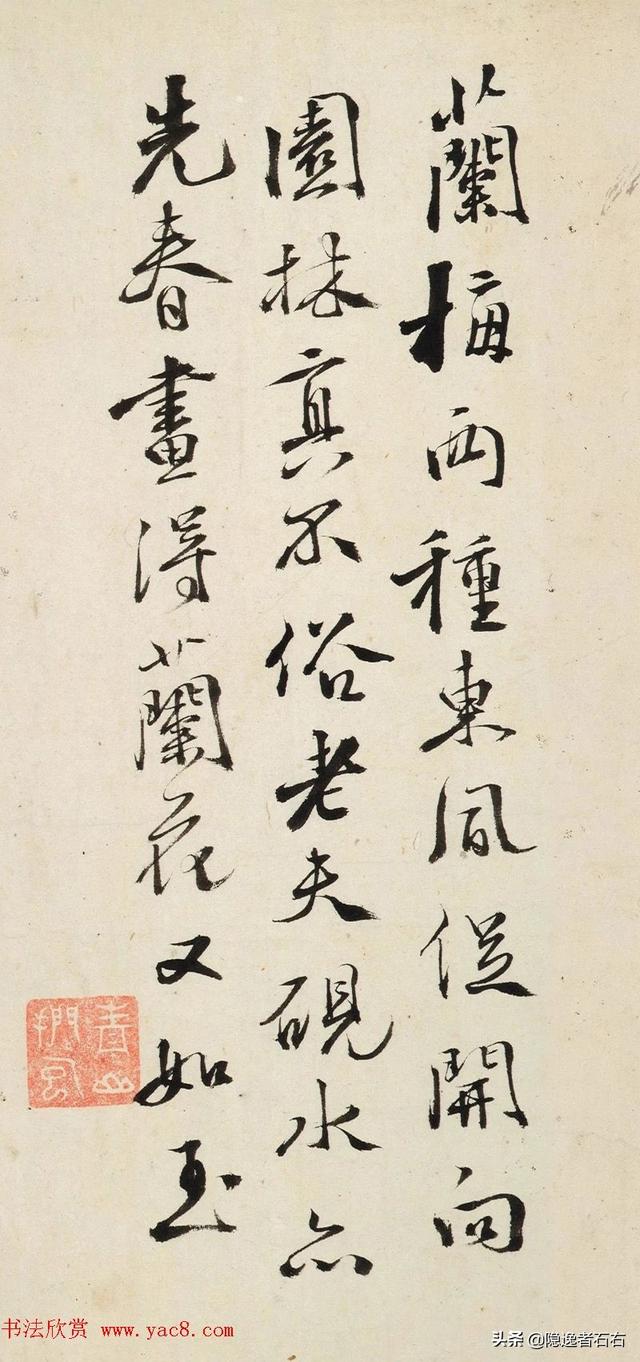 蘭梅兩種東風促開向
園林真不俗老夫硯水亦
先春畫得蘭花又如玉
书法欣赏 www.yac8.com
头条 @隐逸者石右